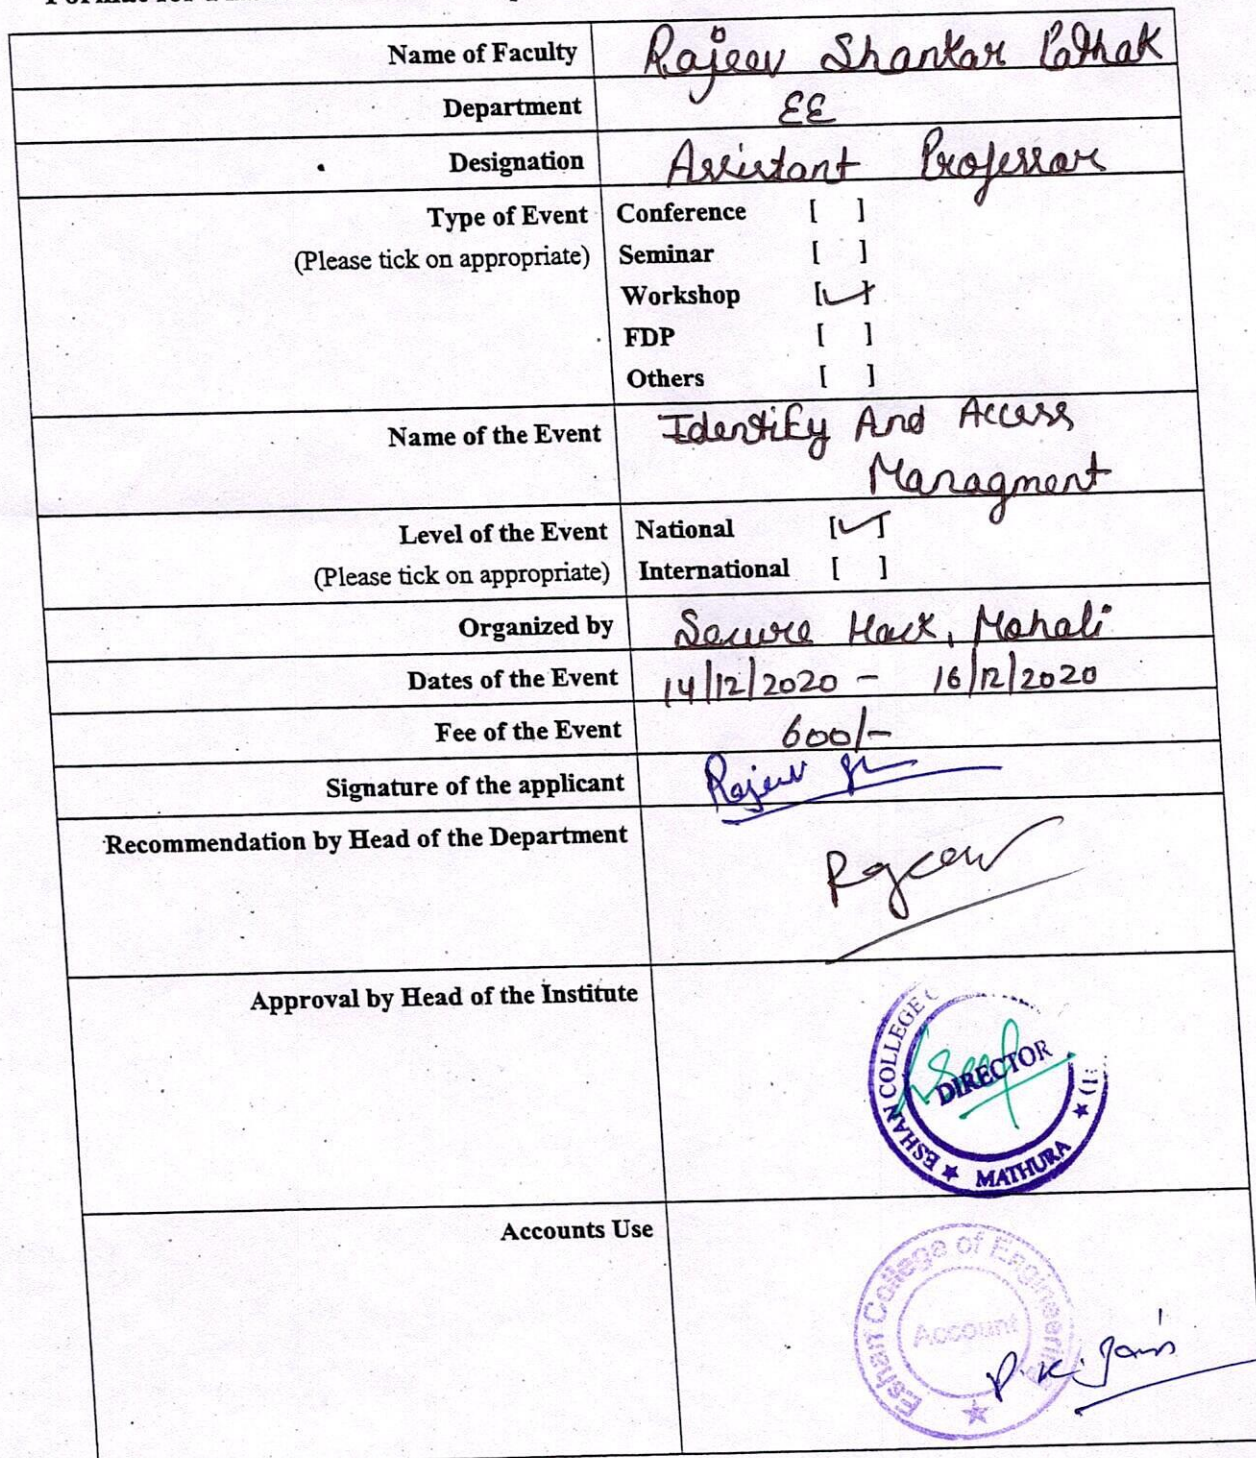 Name of Faculty Rajeev Shankar Pathak
Department EE
Designation Assistant Professor
Type of Event Conference [ ]
(Please tick on appropriate) Seminar [ ]
Workshop [✓]
FDP [ ]
Others [ ]
Name of the Event Identify And Access
Managment
Level of the Event National [✓]
(Please tick on appropriate) International [ ]
Organized by Secure Hack, Mohali
Dates of the Event 14/12/2020 - 16/12/2020
Fee of the Event 600/-
Signature of the applicant Rajeev
Recommendation by Head of the Department
Approval by Head of the Institute
ESHAN COLLEGE
DIRECTOR
★ MATHURA ★
Accounts Use
Eshan College of Engineering
Account
★
P.K. Jain